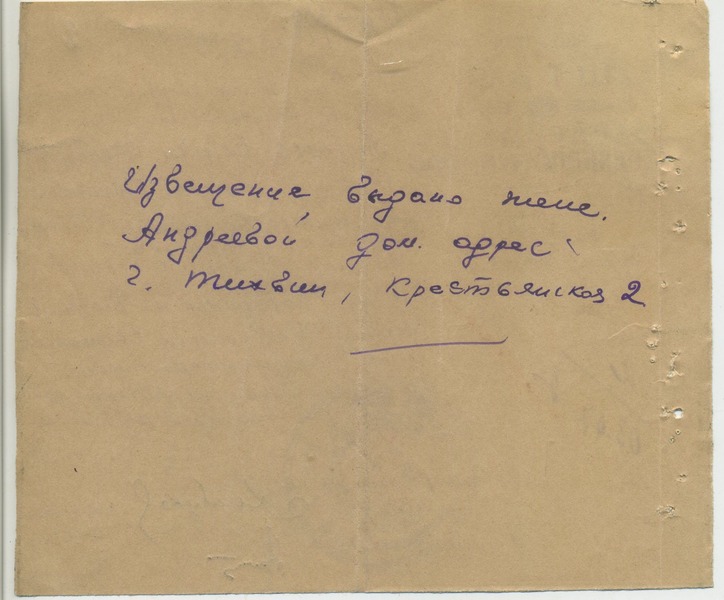 Извещение выдано жене.
Андреевой дом. адрес:
г. Тихвин, Крестьянская 2